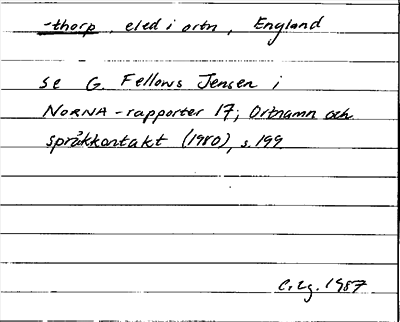 -thorp, eled i ortn, England
se G. Fellows Jensen i
NORNA-rapporter 17; Ortnamn och
språkkontakt (1980), s. 199
C. Lg. 1987